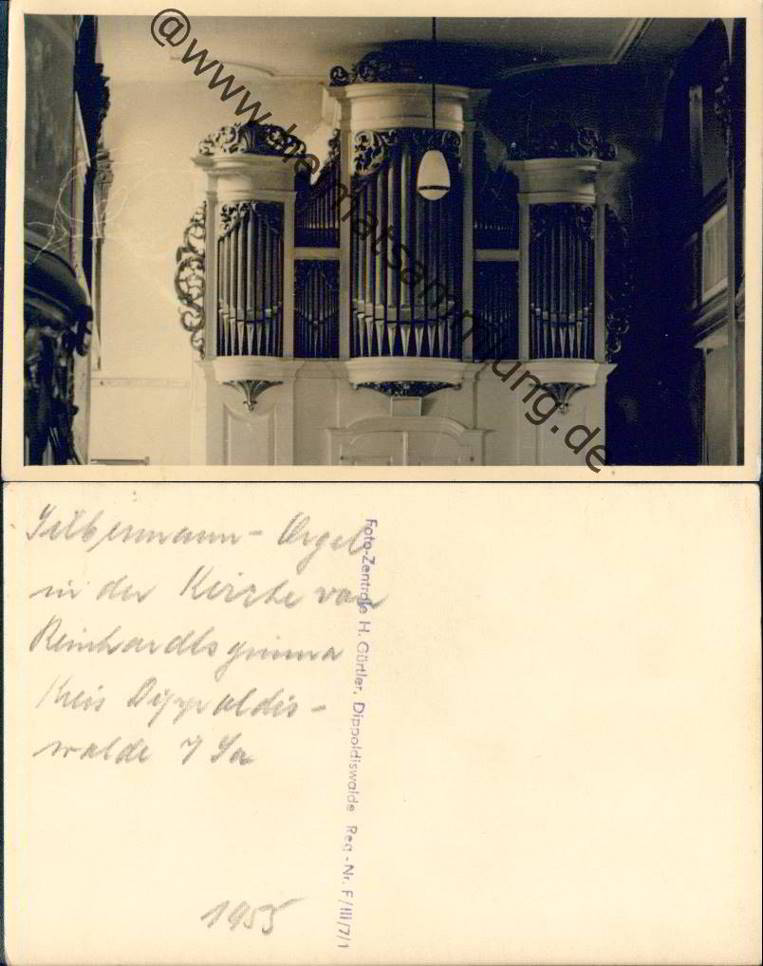 @www.heimatsammlung.de
Silbermann - Orgel
in der Kirche von
Reinhardtsgrimma
Kreis Dippoldis-
walde / Sa
1955
Foto-Zentrale H. Gürtler, Dippoldiswalde Reg-Nr. F/III/7/1